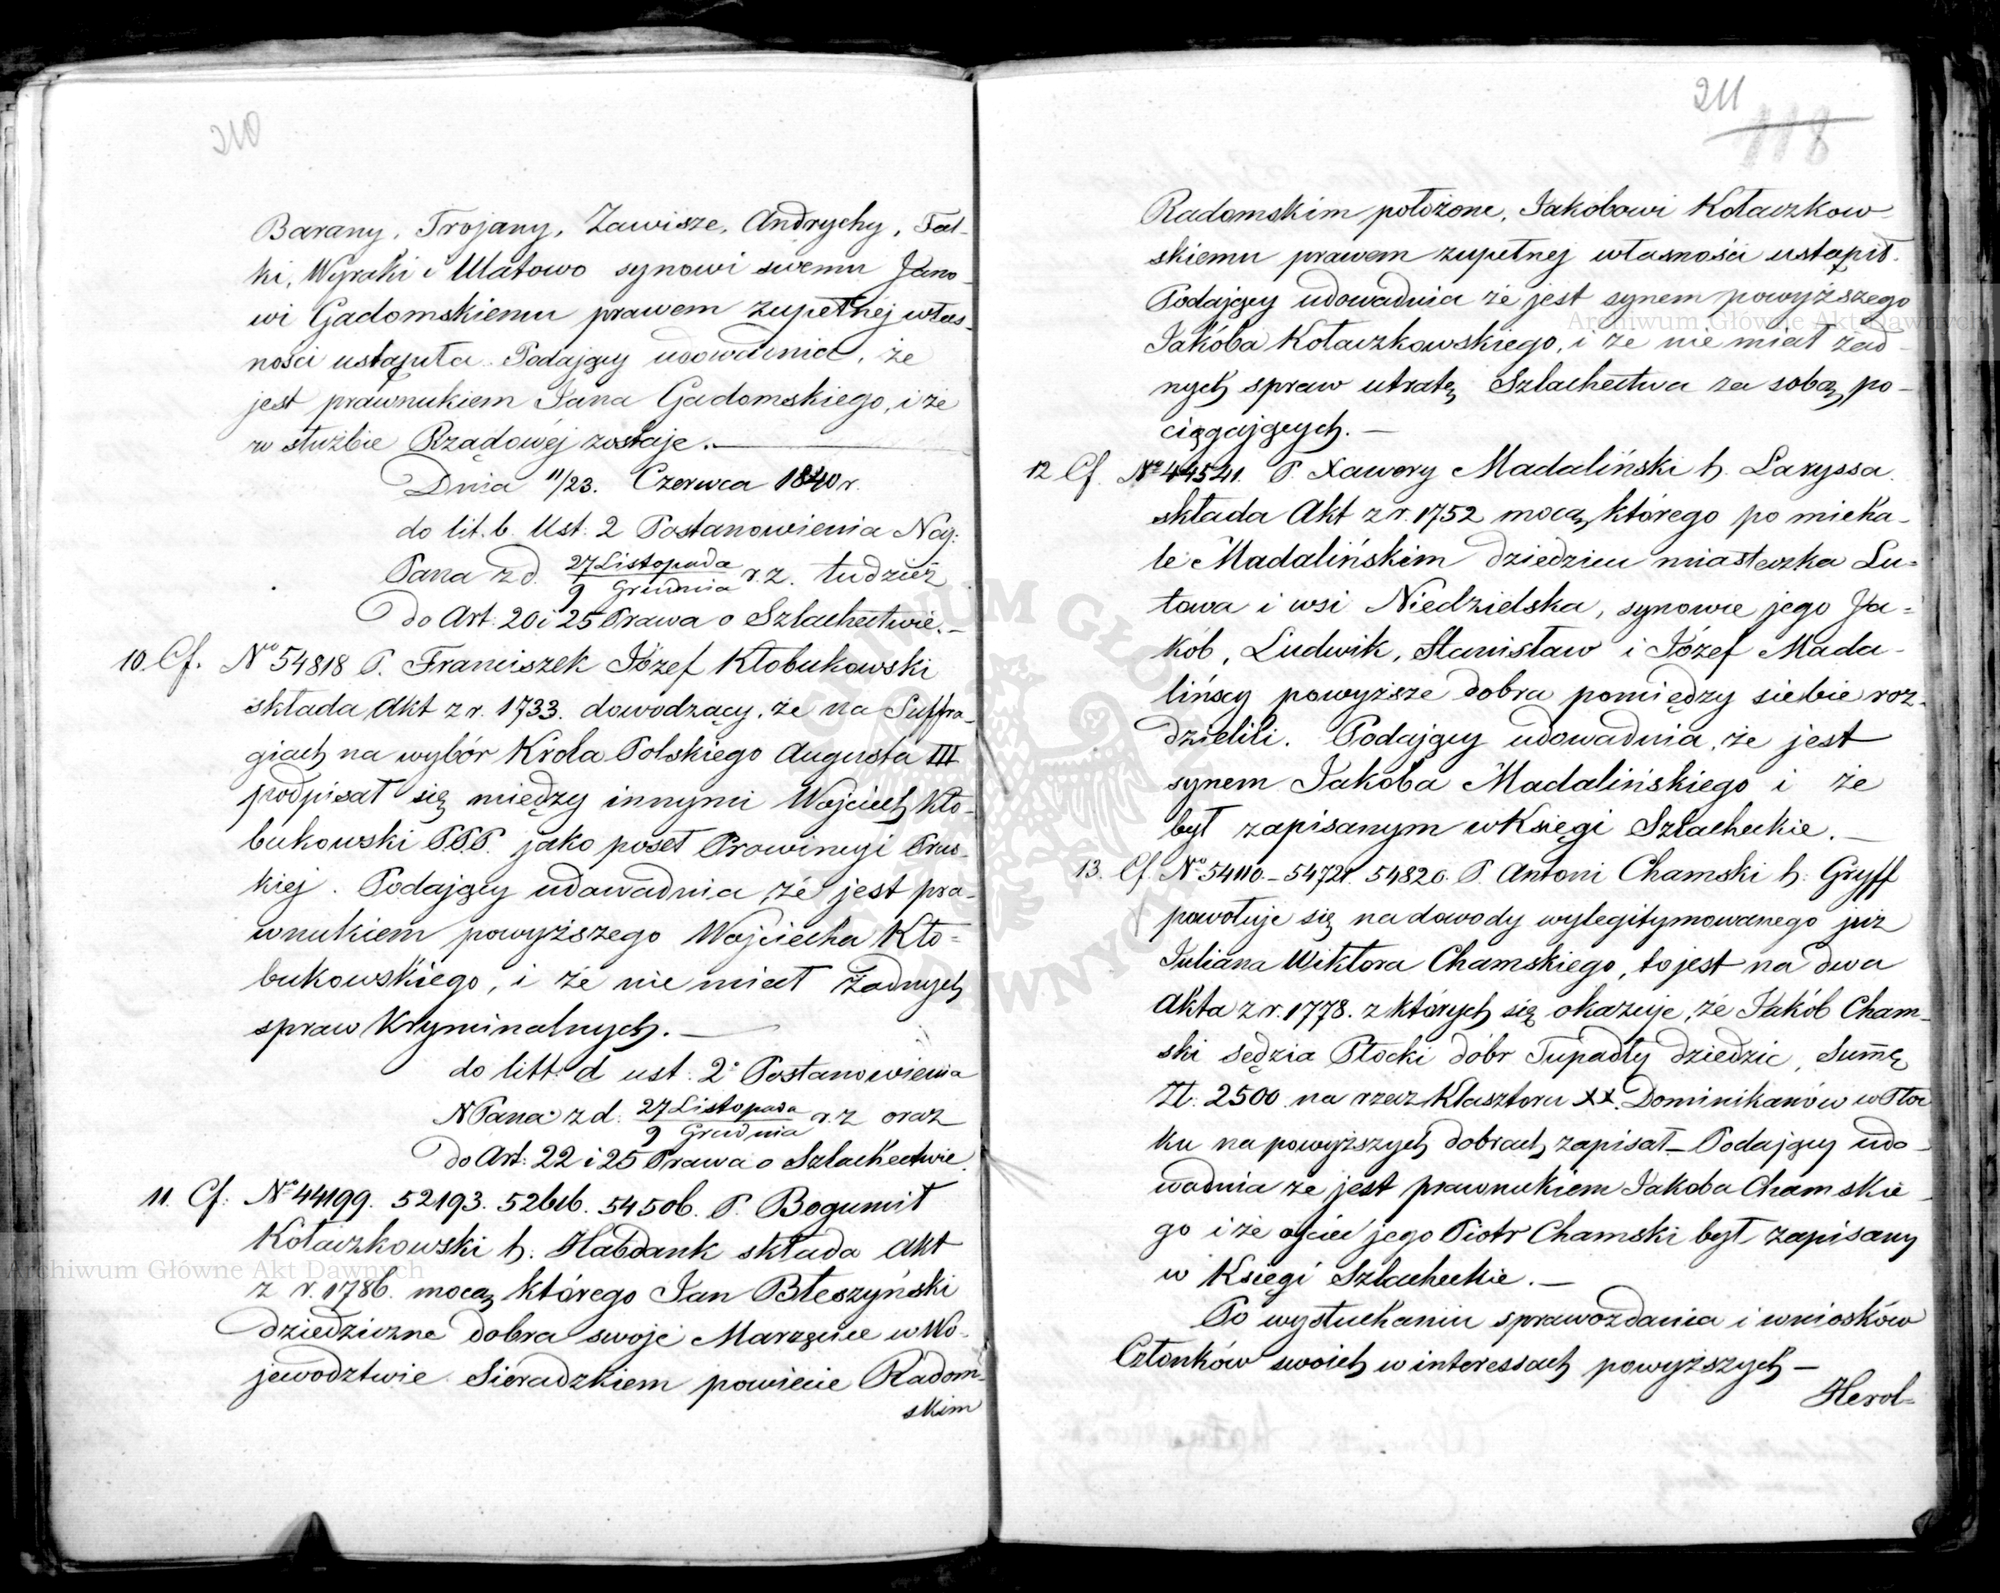 210
Barany, Trojany, Zawisze, Andrychy, Fal-
ki, Wyraki i Ulatowo synowi swemu Jano-
wi Gadomskiemu prawem zupełnej włas-
ności ustąpiła. Podający udowadnia, że
jest prawnukiem Jana Gadomskiego, i że
w służbie Rządowéj zostaje.—
Dnia 11/23. Czerwca 1840 r.
do lit. b. Ust: 2 Postanowienia Naj:
Pana z d. 27 Listopada / 9 Grudnia r. z. tudzież
do Art: 20 i 25 Prawa o Szlachectwie.—
10. Cf. Nro 54818 P. Franciszek Józef Kłobukowski
składa Akt z r. 1733. dowodzący, że na Suffra-
giach na wybór Króla Polskiego Augusta III
podpisał się między innymi Wojciech Kło-
bukowski P.P.P. jako poseł Prowincyi Prus-
kiej. Podający udowadnia, że jest pra-
wnukiem powyższego Wojciecha Kło-
bukowskiego, i że nie miał żadnych
spraw Kryminalnych.—
do litt: d ust: 2° Postanowienia
N Pana z d. 27 Listopada / 9 Grudnia r. z oraz
do Art: 22 i 25 Prawa o Szlachectwie.
11. Cf: No 44199. 52193. 52616. 54506. P. Bogumił
Kołaczkowski h. Habdank składa Akt
z r. 1786. mocą którego Jan Błeszyński
dziedziczne dobra swoje Marzęcice w Wo-
jewodztwie Sieradzkiem powiecie Radom-
skim
211
118
Radomskim położone, Jakóbowi Kołaczkow-
skiemu prawem zupełnej własności ustąpił.
Podający udowadnia że jest synem powyższego
Jakóba Kołaczkowskiego, i że nie miał żad-
nych spraw utratę Szlachectwa za sobą po-
ciągających.—
12 Cf. No 44541. P. Xawery Madaliński h. Laryssa.
składa Akt z r. 1752 mocą którego po micha-
le Madalińskim dziedzicu miasteczka Lu-
towa i wsi Niedzielska, synowie jego Ja-
kób, Ludwik, Stanisław i Józef Mada-
lińscy powyższe dobra pomiędzy siebie roz-
dzielili. Podający udowadnia, że jest
synem Jakóba Madalińskiego i że
był zapisanym w Księgi Szlacheckie.—
13. Cf. No 54110.–54721. 54820. P. Antoni Chamski h: Gryff
powołuje się na dowody wylegitymowanego już
Juliana Wiktora Chamskiego, to jest na dwa
Akta z r. 1778. z których się okazuje, że Jakób Cham-
ski sędzia Płocki dóbr Tupadły dziedzic, Summę
Zł: 2500 na rzecz Klasztoru XX. Dominikanów w Płoc
ku na powyższych dobrach zapisał – Podający udo-
wadnia że jest prawnukiem Jakóba Chamskie-
go i że ojciec jego Piotr Chamski był zapisany
w Księgi Szlacheckie.—
Po wysłuchaniu sprawozdania i wniosków
Członków swoich w interessach powyższych —
Herol-
Archiwum Główne Akt Dawnych
Archiwum Główne Akt Dawnych
ARCHIWUM GŁÓWNE AKT DAWNYCH